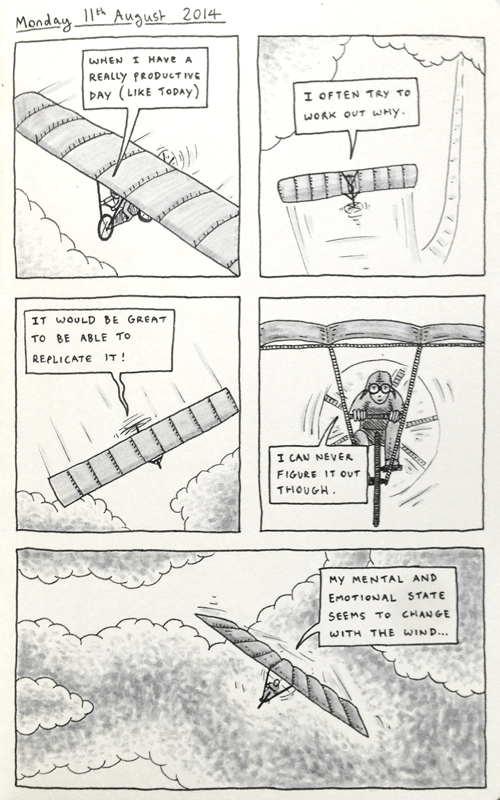 Monday 11th August 2014
WHEN I HAVE A
REALLY PRODUCTIVE
DAY (LIKE TODAY)
I OFTEN TRY TO
WORK OUT WHY.
IT WOULD BE GREAT
TO BE ABLE TO
REPLICATE IT!
I CAN NEVER
FIGURE IT OUT
THOUGH.
MY MENTAL AND
EMOTIONAL STATE
SEEMS TO CHANGE
WITH THE WIND...